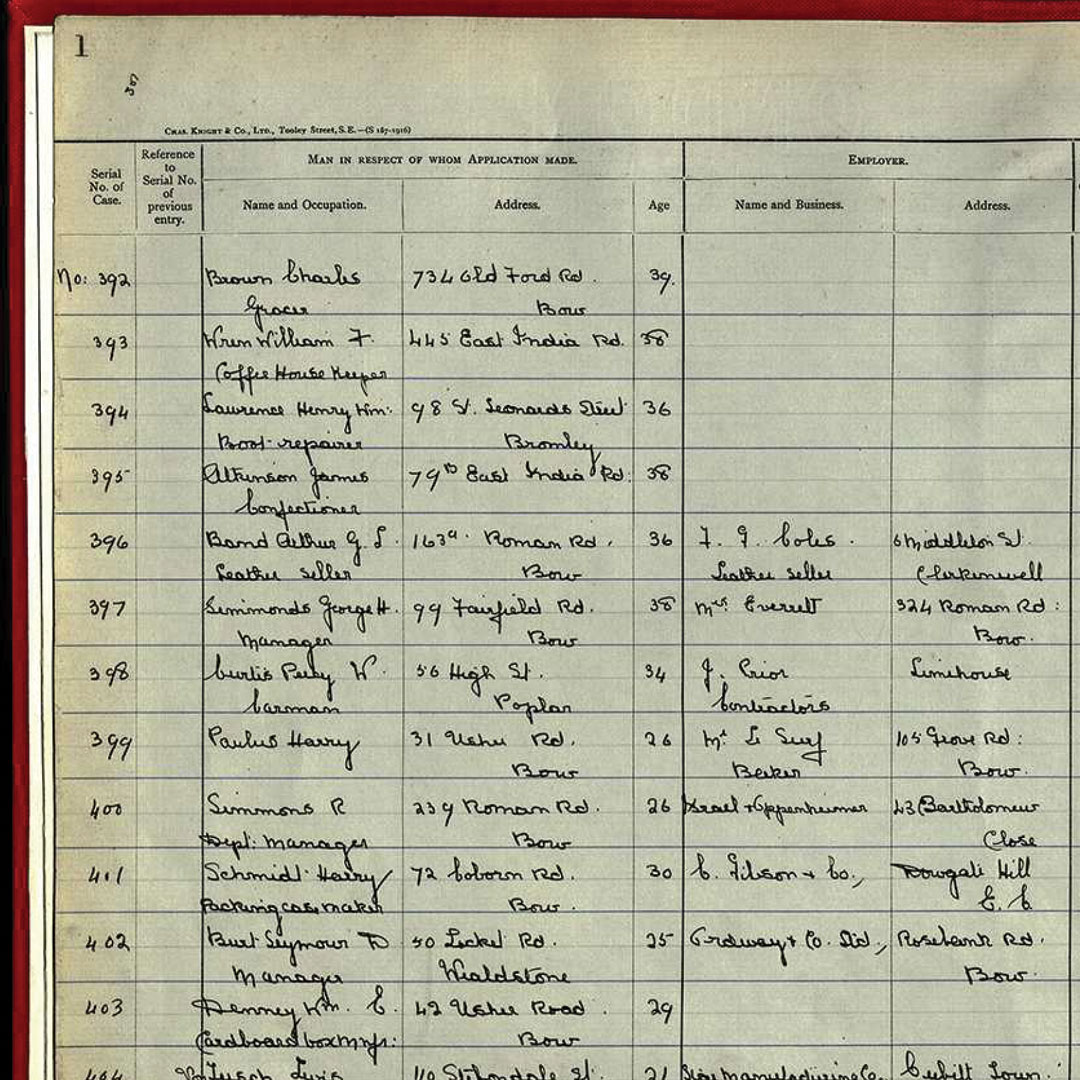 1
307
CHAS. KNIGHT & CO., LTD., Tooley Street, S.E.—(S 187-1916)
Serial No. of Case.
Reference to Serial No. of previous entry.
MAN IN RESPECT OF WHOM APPLICATION MADE.
EMPLOYER.
Name and Occupation. Address. Age Name and Business. Address.
No: 392 Brown Charles 734 Old Ford Rd. 39.
Grocer Bow
393 Wren William F. 445 East India Rd. 38
Coffee House Keeper
394 Lawrence Henry Wm: 98 St. Leonards Street 36
Boot-repairer Bromley
395 Atkinson James 79 East India Rd. 38
Confectioner
396 Band Arthur G. L. 163a. Roman Rd. 36 F. G. Coles. 6 Middleton St.
Leather seller Bow Leather seller Clerkenwell
397 Simmonds George H. 99 Fairfield Rd. 38 Mrs. Everett 324 Roman Rd:
Manager Bow Bow.
398 Curtis Percy W. 56 High St. 34 J. Prior Limehouse
Carman Poplar Contractors
399 Paulus Harry 31 Usher Rd. 26 Mr Le Surf 105 Grove Rd:
Bow Baker Bow.
400 Simmons R 239 Roman Rd. 26 Israel & Oppenheimer 43 Bartholomew
Dept: Manager Bow Close
401 Schmidt Harry 72 Coborn Rd. 30 C. Gibson & Co., Dowgate Hill
Packing case maker Bow. E. C.
402 Burt Seymour D 50 Locket Rd. 25 Ordway & Co. Ltd., Rosebank Rd.
Manager Wealdstone Bow.
403 Denney Wm. C. 42 Usher Road. 29
Cardboard box mnfr: Bow
404 110 Stebondale St. 21 Manufacturing Co. Cubitt Town.